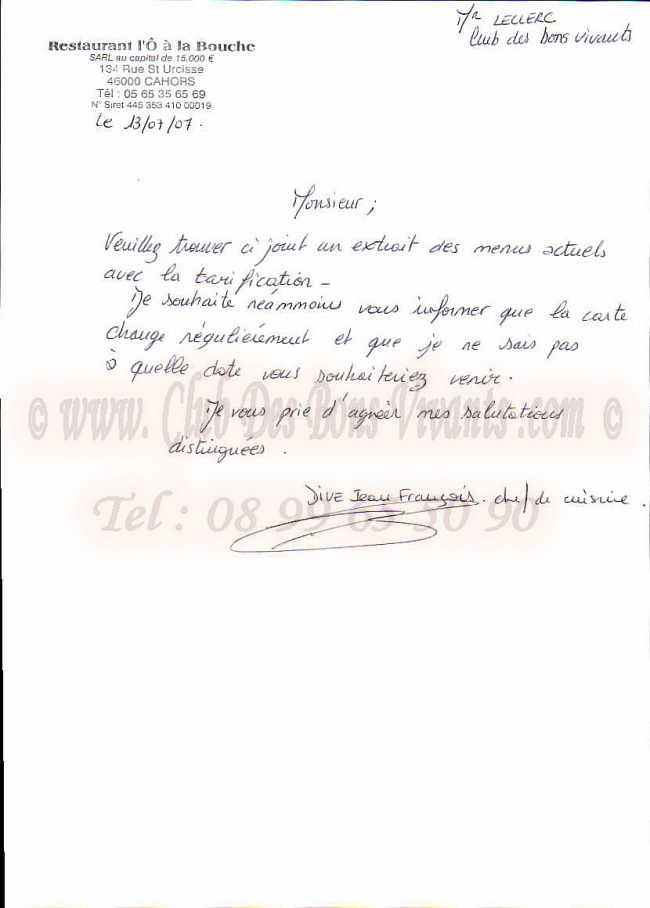 Mr LECLERC
Club des bons vivants
Restaurant l'Ô à la Bouche
SARL au capital de 15.000 €
134 Rue St Urcisse
46000 CAHORS
Tél : 05 65 35 65 69
N° Siret 445 353 410 00019
Le 13/07/07.
Monsieur ;
Veuillez trouver ci joint un extrait des menus actuels
avec la tarification -
Je souhaite néammoins vous informer que la carte
change régulièrement et que je ne sais pas
à quelle date vous souhaiteriez venir.
© www.ClubDesBonsVivants.com ©
Je vous prie d'agréer mes salutations
distinguées.
DIVE Jean François. chef de cuisine.
Tel : 08 99 65 80 90